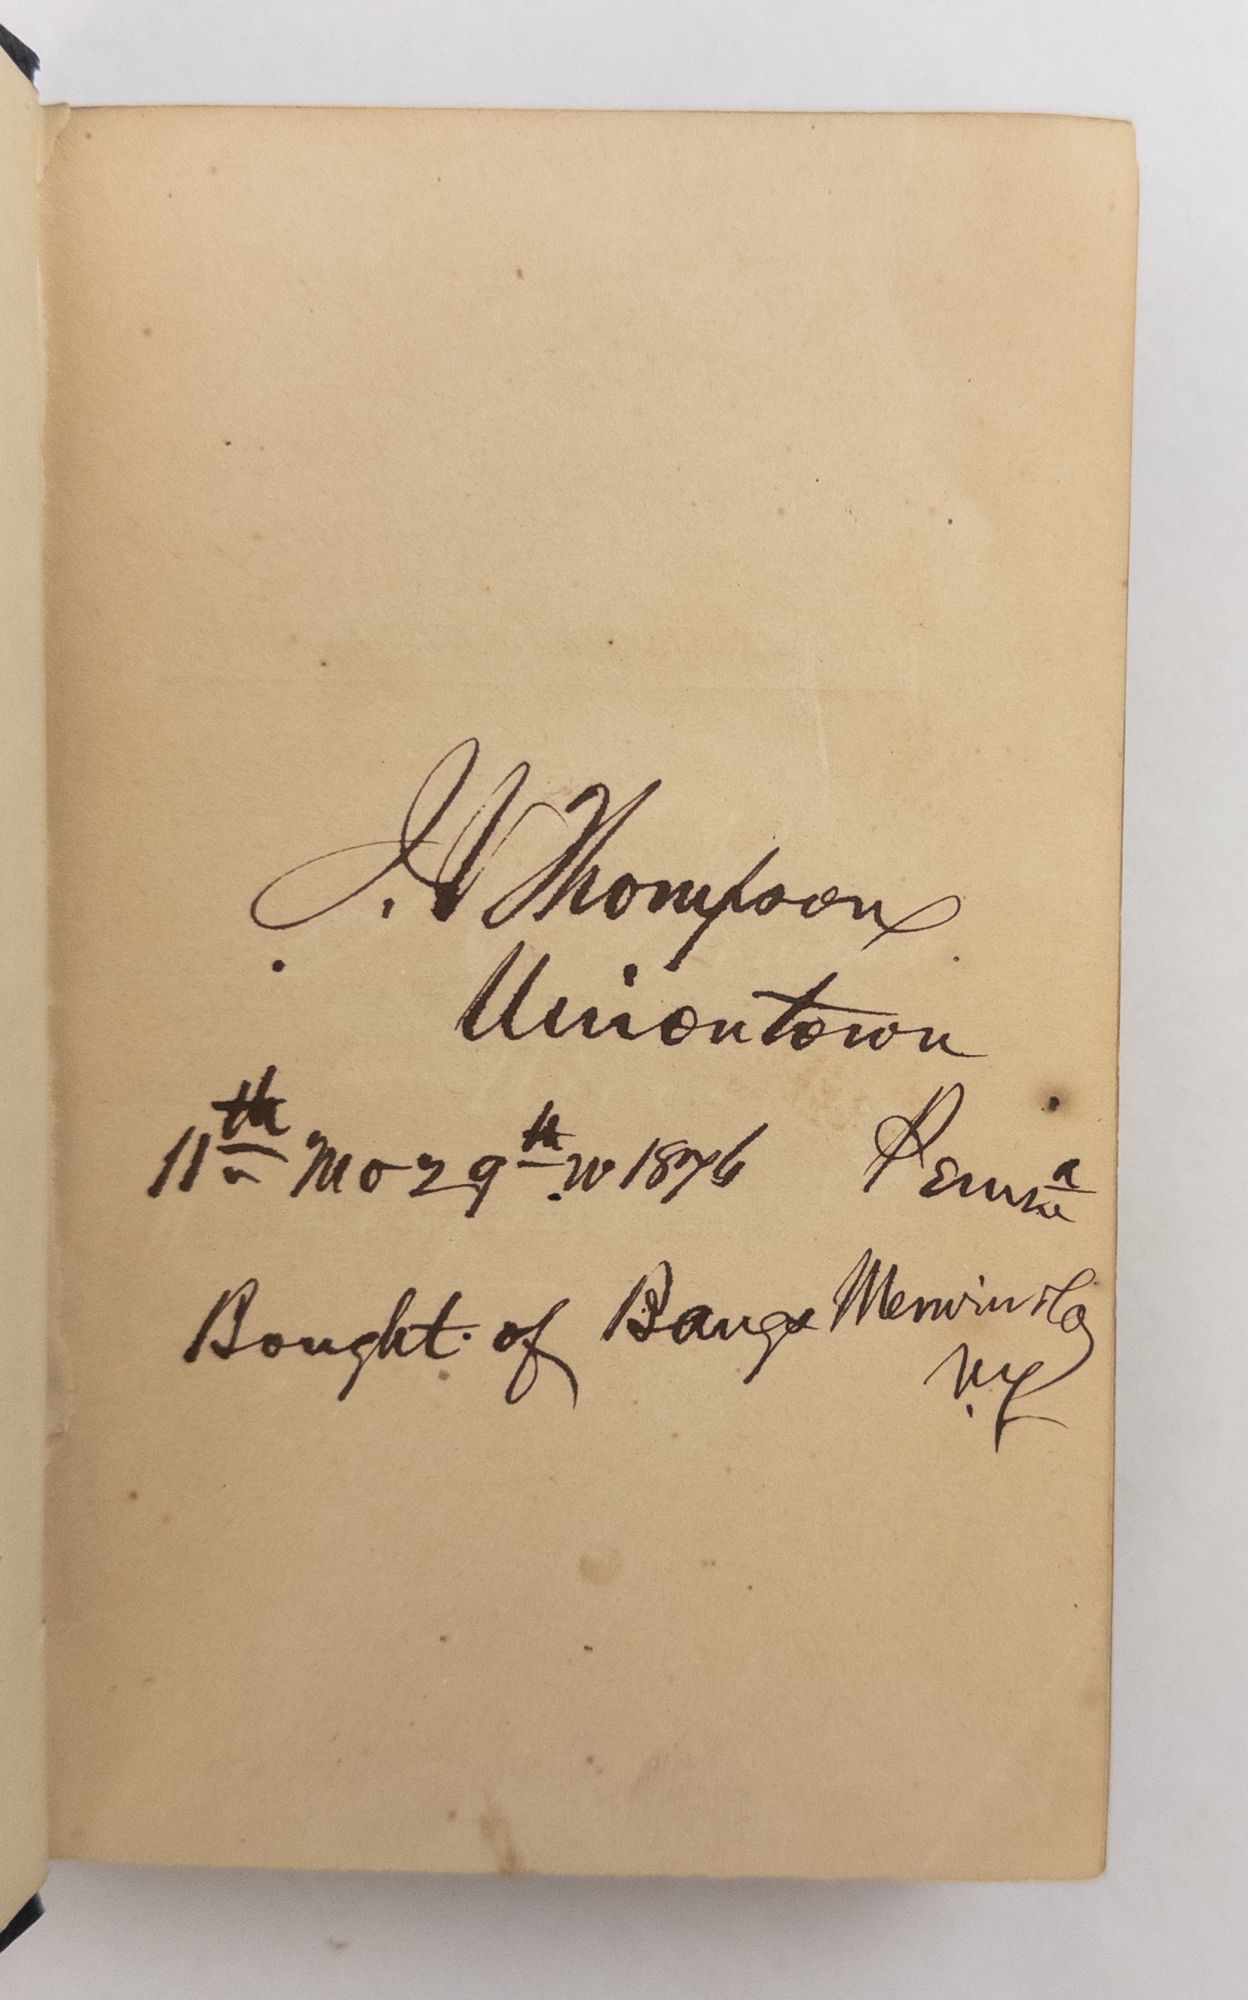 J. V Thompson
Uniontown
11th Mo 29th 1876 Penna
Bought of Bangs Merwin & Co
N.Y